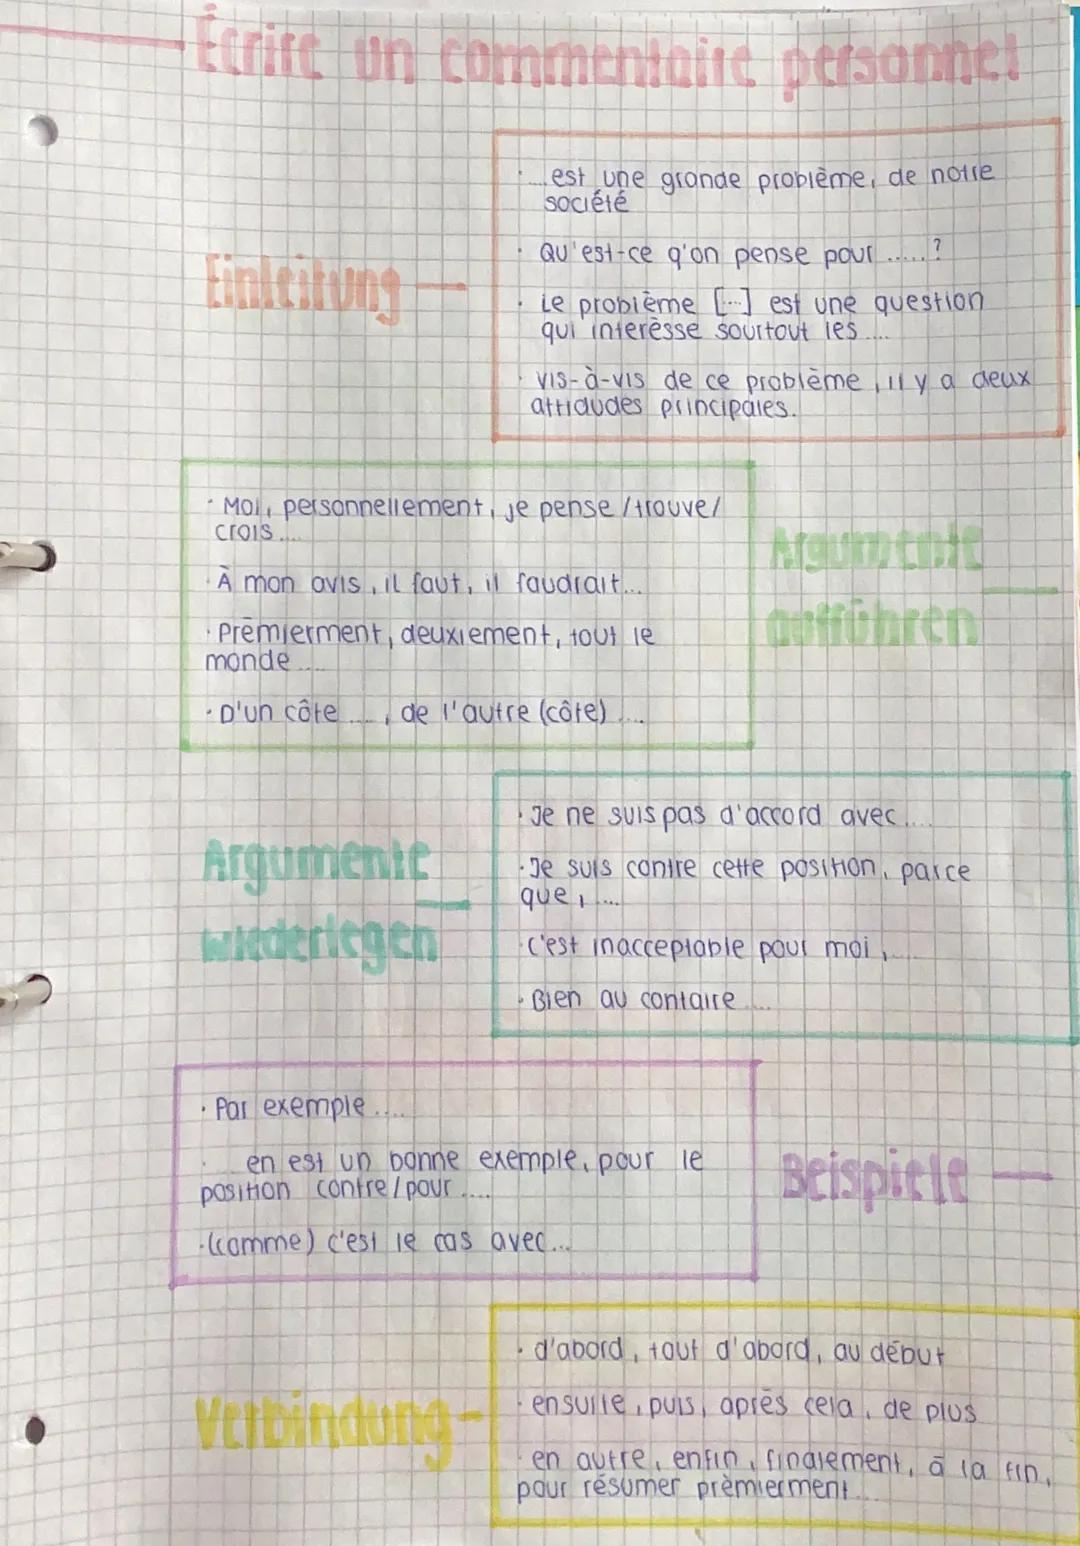 Écrire un commentaire personnel
· ...est une grande problème, de notre
société
Einleitung
· Qu'est-ce q'on pense pour .....?
· Le problème [...] est une question
qui interèsse sourtout les ....
· vis-à-vis de ce problème, il y a deux
attidudes principales.
· Moi, personnellement, je pense /trouve/
crois....
Argumente
aufführen
· À mon avis, il faut, il faudrait...
· Prèmierment, deuxiement, tout le
monde ....
· D'un côte ...., de l'autre (côte) ....
Argumente
wiederlegen
· Je ne suis pas d'accord avec....
· Je suis contre cette position, parce
que, ....
· C'est inacceptable pour moi, ....
· Bien au contaire ....
· Par exemple ....
Beispiele
· .... en est un bonne exemple, pour le
position contre/pour ....
· (comme) c'est le cas avec...
Verbindung
· d'abord, tout d'abord, au début
· ensuite, puis, après cela, de plus
· en outre, enfin, finalement, à la fin,
pour résumer prèmierment...